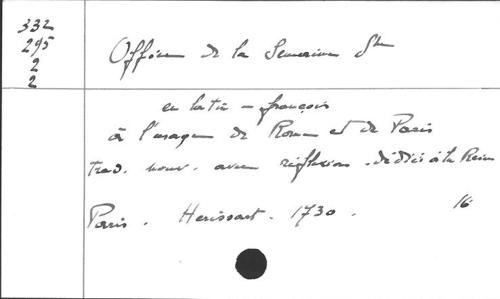 332
295
2
2
Office de la Semaine Ste
en latin - françois
à l'usage de Rome et de Paris
trad. nouv. avec réflexions. dédiés à la Reine
Paris. Herissart. 1730. 16